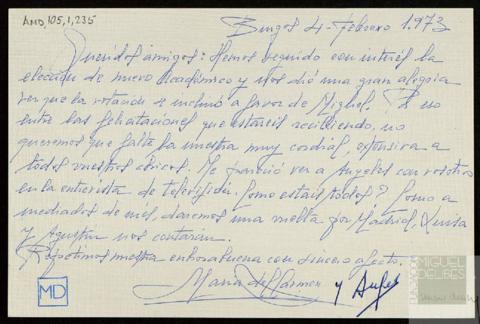 AMD,105,1,235
Burgos 4-febrero 1.973
Queridos amigos: Hemos seguido con interés la
elección de nuevo Académico y nos dió una gran alegria
ver que la votación se inclinó a favor de Miguel. Y no
entre las felicitaciones que estareis recibiendo, no
queremos que falte la nuestra muy cordial, extensiva a
todos vuestros chicos. Me pareció ver a Angeles con vosotros
en la entrevista de televisión. Como estais todos? Como a
mediados de mes, daremos una vuelta por Madrid, Luisa
y Agustin nos contarán.
Repetimos nuestra enhorabuena con sincero afecto.
Maria del Carmen y Angel
MD
MIGUEL
DELIBES